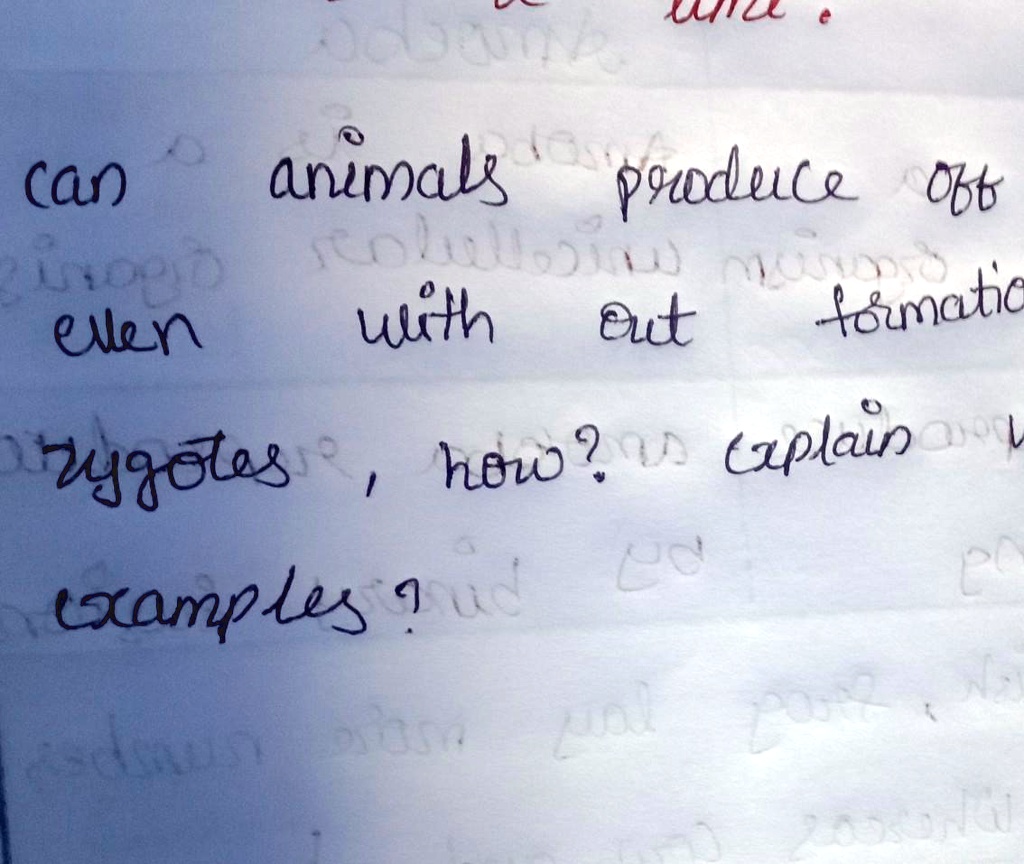 time.
can animals produce off
even with out formatio
zygotes, how? explain
examples?